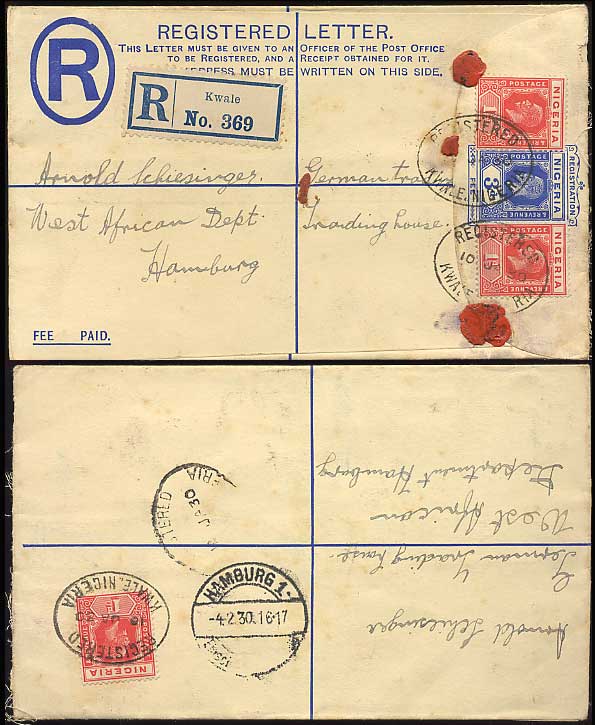 REGISTERED LETTER.
THIS LETTER MUST BE GIVEN TO AN OFFICER OF THE POST OFFICE
TO BE REGISTERED, AND A RECEIPT OBTAINED FOR IT.
ADDRESS MUST BE WRITTEN ON THIS SIDE.
R
R Kwale
No. 369
Arnold Schiesinger German
West African Dept. Trading house.
Hamburg
FEE PAID.
NIGERIA
POSTAGE
& REVENUE
REGISTRATION
NIGERIA
POSTAGE
& REVENUE
3d
FEE
NIGERIA
POSTAGE
& REVENUE
REGISTERED
KWALE, NIGERIA
REGISTERED
10 JA 30
KWALE
Arnold Schiesinger
German Trading house.
West African
Department Hamburg
JA 30
HAMBURG 1
-4.2.30.16-17
REGISTERED
KWALE, NIGERIA
NIGERIA